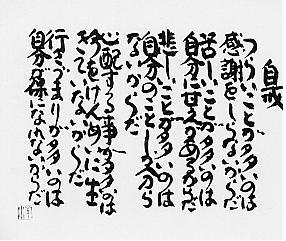 自戒
つらいことが多いのは
感謝をしらないからだ
苦しいことが多いのは
自分に甘えがあるからだ
悲しいことが多いのは
自分のことしか分から
ないからだ
心配する事が多いのは
今をけんめいに生
きていないからだ
行きづまりが多いのは
自分が裸になれないからだ